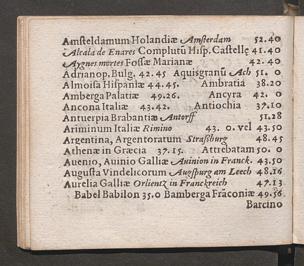 Amsteldamum Holandiæ Amsterdam 52.40
Alcala de Enares Complutū Hisp. Castellę 41.40
Aygnes mortes Fossæ Marianæ 42.40
Adrianop. Bulg. 42.45 Aquisgranū Ach 51. 0
Almoisa Hispaniæ 44.45. Ambratia 38.20
Amberga Palatiæ 49.26. Ancyra 42. 0
Ancona Italiæ 43.42. Antiochia 37.10
Antuerpia Brabantiæ Antorff 51.28
Ariminum Italiæ Rimino 43. 0. vel 43.50
Argentina, Argentoratum Straßburg 48.45
Athenæ in Græcia 37.15. Attrebatam 50. 0
Auenio, Auinio Galliæ Auinion in Franck. 43.50
Augusta Vindelicorum Augspurg am Leech 48.16
Aurelia Galliæ Orlientz in Franckreich 47.13
Babel Babilon 35.0 Bamberga Frāconiæ 49.56
Barcino